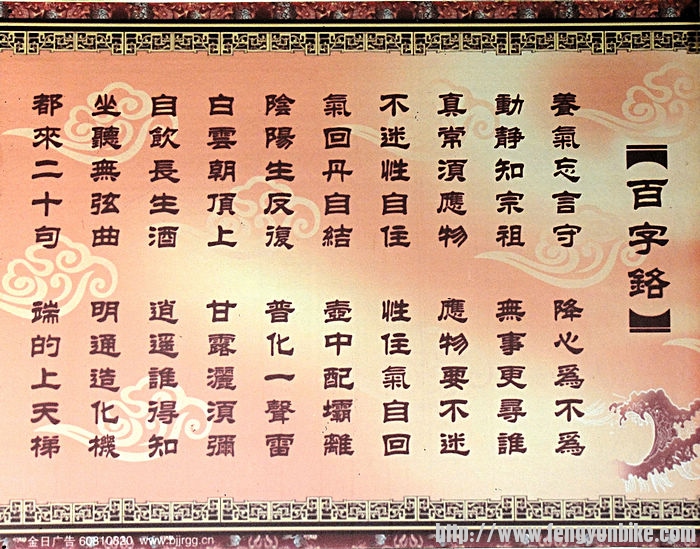 【百字鉻】
養氣忘言守 降心爲不爲
動靜知宗祖 無事更尋誰
真常須應物 應物要不迷
不迷性自住 性住氣自回
氣回丹自結 壺中配壩離
陰陽生反復 普化一聲雷
白雲朝頂上 甘露灑須彌
自飲長生酒 逍遥誰得知
坐聽無弦曲 明通造化機
都來二十句 端的上天梯
金日广告 60810520 www.bjjrgg.cn
http://www.fengyunbike.com